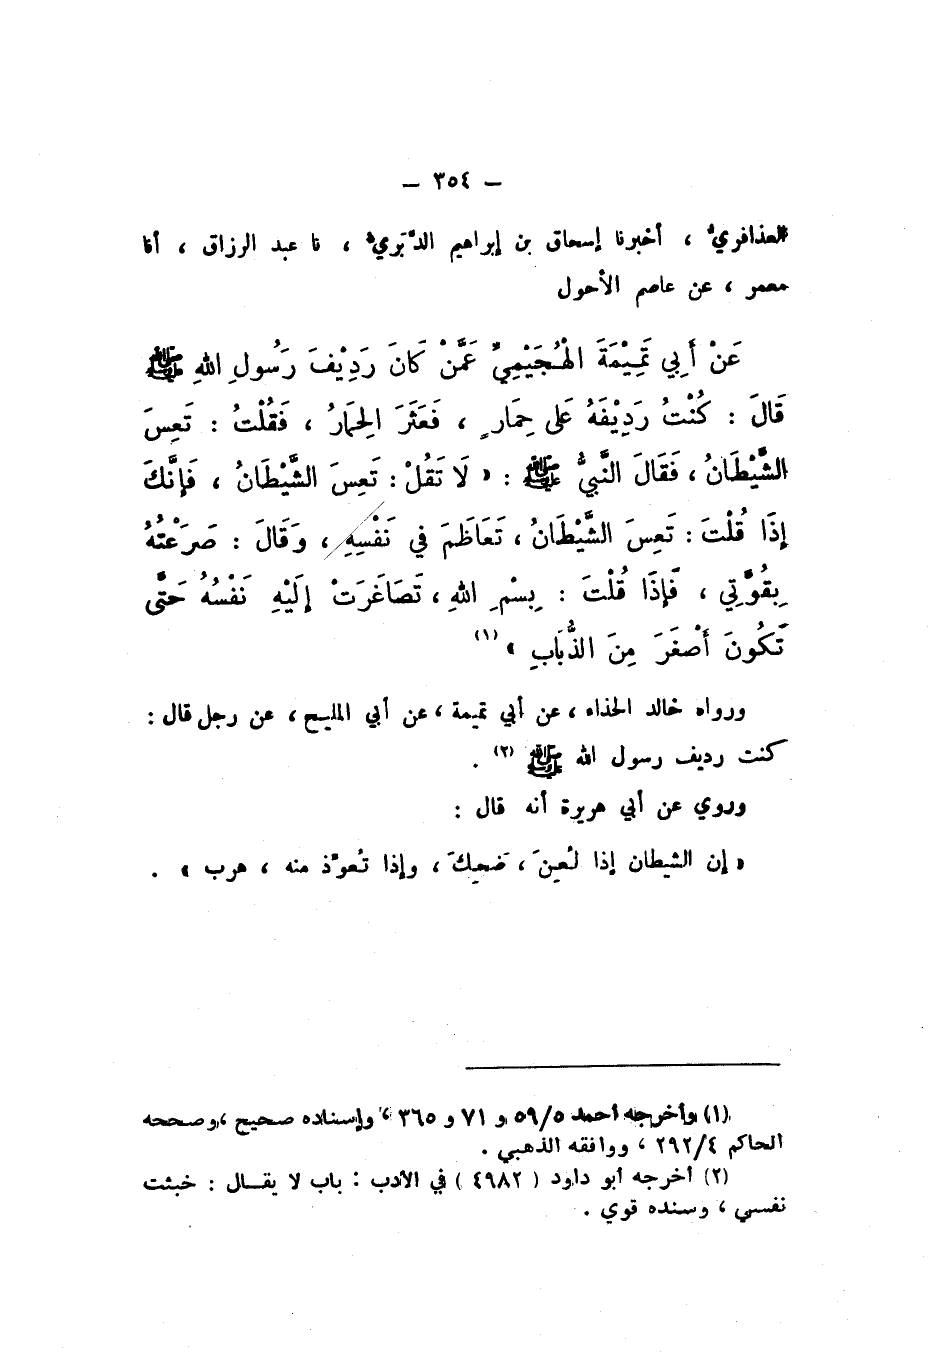 – ٣٥٤ –
العذافريُّ ، أخبرنا إسحاق بن إبراهيم الدَّبَريُّ ، نا عبد الرزاق ، أنا
معمر ، عن عاصم الأحول
عَنْ أَبِي تَمِيْمَةَ الْهُجَيْمِيِّ عَمَّنْ كَانَ رَدِيْفَ رَسُولِ اللهِ ﷺ
قَالَ : كُنْتُ رَدِيْفَهُ عَلى حِمَارٍ ، فَعَثَرَ الحِمَارُ ، فَقُلْتُ : تَعِسَ
الشَّيْطَانُ ، فَقَالَ النَّبِيُّ ﷺ : « لَا تَقُلْ : تَعِسَ الشَّيْطَانُ ، فَإِنَّكَ
إِذَا قُلْتَ : تَعِسَ الشَّيْطَانُ ، تَعَاظَمَ فِي نَفْسِهِ ، وَقَالَ : صَرَعْتُهُ
بِقُوَّتِي ، فَإِذَا قُلْتَ : بِسْمِ اللهِ ، تَصَاغَرَتْ إِلَيْهِ نَفْسُهُ حَتَّى
تَكُونَ أَصْغَرَ مِنَ الذُّبَابِ » (١)
ورواه خالد الحذاء ، عن أبي تميمة ، عن أبي المليح ، عن رجل قال :
كنت رديف رسول الله ﷺ (٢) .
وروي عن أبي هريرة أنه قال :
« إن الشيطان إذا لُعِنَ ، ضَحِكَ ، وإذا تُعوِّذ منه ، هرب » .
(١) وأخرجه أحمد ٥٩/٥ و ٧١ و ٣٦٥ ، وإسناده صحيح ، وصححه
الحاكم ٢٩٢/٤ ، ووافقه الذهبي .
(٢) أخرجه أبو داود ( ٤٩٨٢ ) في الأدب : باب لا يقال : خبثت
نفسي ، وسنده قوي .